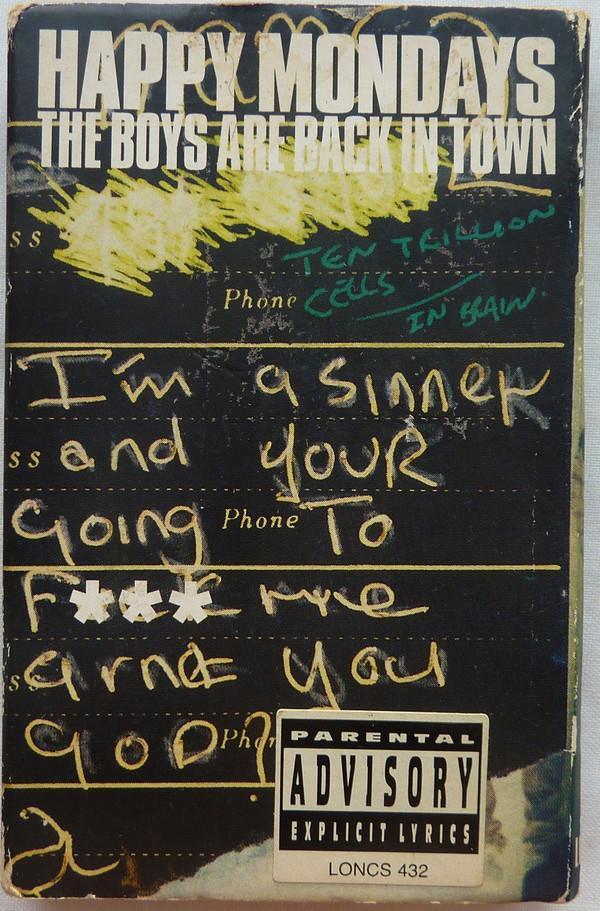 HAPPY MONDAYS
THE BOYS ARE BACK IN TOWN
ss
TEN TRILLION
Phone CELLS
IN BRAIN.
I'm a SinneR
ss and YOUR
Going Phone To
F*** me
ss arnt you
GOD?
PARENTAL
ADVISORY
EXPLICIT LYRICS
LONCS 432